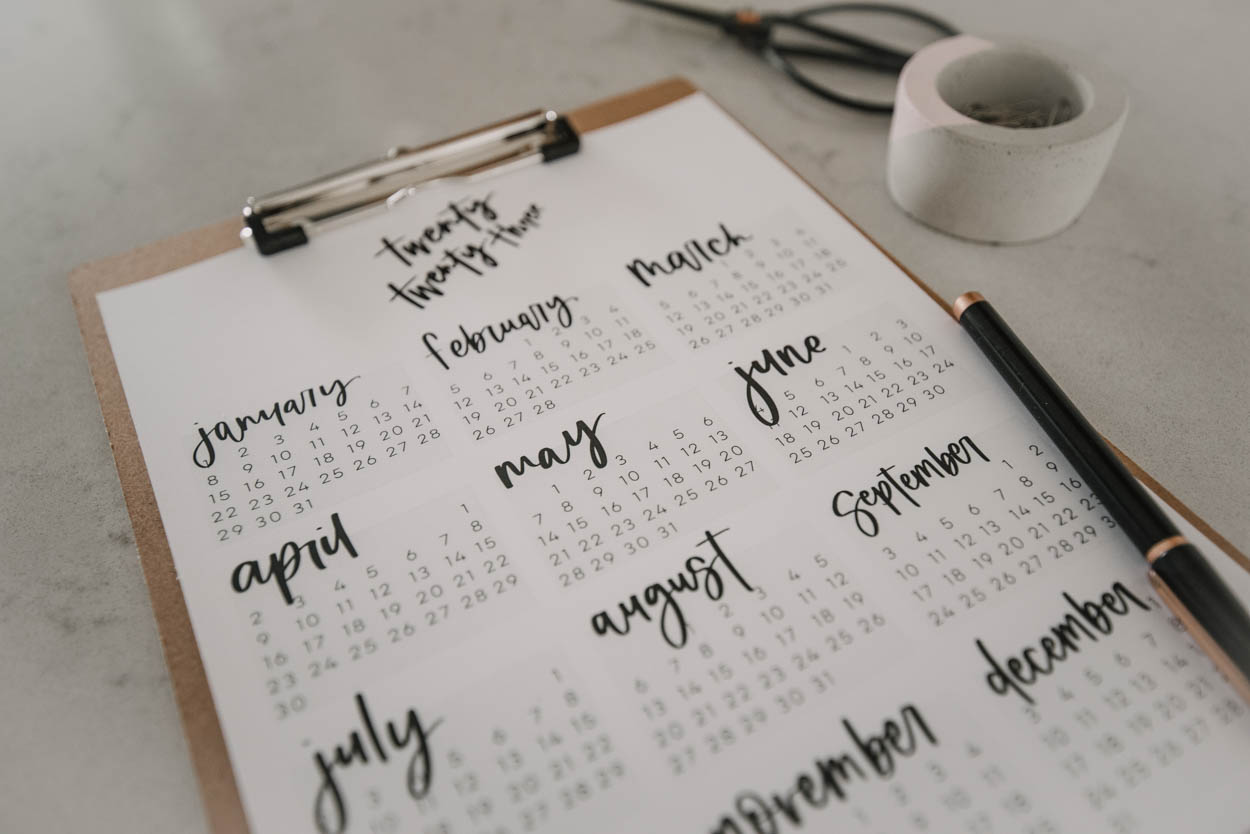 twenty
twenty three
january
1 2 3 4 5 6 7
8 9 10 11 12 13 14
15 16 17 18 19 20 21
22 23 24 25 26 27 28
29 30 31
february
1 2 3 4
5 6 7 8 9 10 11
12 13 14 15 16 17 18
19 20 21 22 23 24 25
26 27 28
march
1 2 3 4
5 6 7 8 9 10 11
12 13 14 15 16 17 18
19 20 21 22 23 24 25
26 27 28 29 30 31
april
1
2 3 4 5 6 7 8
9 10 11 12 13 14 15
16 17 18 19 20 21 22
23 24 25 26 27 28 29
30
may
1 2 3 4 5 6
7 8 9 10 11 12 13
14 15 16 17 18 19 20
21 22 23 24 25 26 27
28 29 30 31
june
1 2 3
4 5 6 7 8 9 10
11 12 13 14 15 16 17
18 19 20 21 22 23 24
25 26 27 28 29 30
july
1
5 6 7 8
13 14 15
august
2 3 4 5
6 7 8 9 10 11 12
13 14 15 16 17 18 19
20 21 22 23 24 25 26
27 28 29 30 31
september
1 2
3 4 5 6 7 8 9
10 11 12 13 14 15 16
17 18 19 20 21 22
24 25 26 27 28 29
november
3 4
december
3 4 5 6 7 8
10 11 12 13 14
17 18 19 20